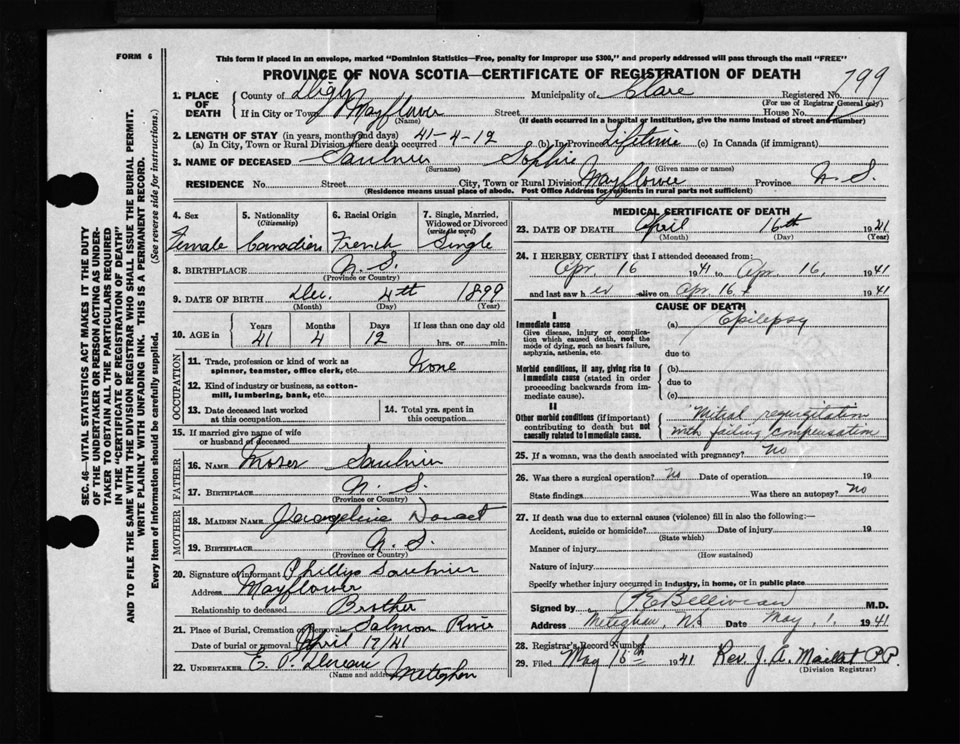 FORM 6
SEC. 46—VITAL STATISTICS ACT MAKES IT THE DUTY
OF THE UNDERTAKER OR PERSON ACTING AS UNDER-
TAKER TO OBTAIN ALL THE PARTICULARS REQUIRED
IN THE "CERTIFICATE OF REGISTRATION OF DEATH"
AND TO FILE THE SAME WITH THE DIVISION REGISTRAR WHO SHALL ISSUE THE BURIAL PERMIT.
WRITE PLAINLY WITH UNFADING INK. THIS IS A PERMANENT RECORD.
Every item of Information should be carefully supplied. (See reverse side for instructions.)
This form if placed in an envelope, marked "Dominion Statistics—Free, penalty for improper use $300," and properly addressed will pass through the mail "FREE"
PROVINCE OF NOVA SCOTIA—CERTIFICATE OF REGISTRATION OF DEATH
799
1. PLACE OF DEATH County of Digby Municipality of Clare Registered No.
(For use of Registrar General only)
If in City or Town Mayflower Street House No.
(Name) (If death occurred in a hospital or institution, give the name instead of street and number)
2. LENGTH OF STAY (in years, months and days)
(a) In City, Town or Rural Division where death occurred 41-4-12 (b) In Province Lifetime (c) In Canada (if immigrant)
3. NAME OF DECEASED Saulnier Sophie
(Surname) (Given name or names)
RESIDENCE No. Street City, Town or Rural Division Mayflower Province N. S.
(Residence means usual place of abode. Post Office Address for residents in rural parts not sufficient)
4. Sex Female
5. Nationality (Citizenship) Canadien
6. Racial Origin French
7. Single, Married, Widowed or Divorced (write the word) Single
8. BIRTHPLACE N. S.
(Province or Country)
9. DATE OF BIRTH Dec. 4th 1899
(Month) (Day) (Year)
10. AGE in Years Months Days If less than one day old
41 4 12 hrs. or min.
OCCUPATION
11. Trade, profession or kind of work as spinner, teamster, office clerk, etc. None
12. Kind of industry or business, as cotton-mill, lumbering, bank, etc.
13. Date deceased last worked at this occupation
14. Total yrs. spent in this occupation
15. If married give name of wife or husband of deceased
FATHER
16. NAME Moser Saulnier
17. BIRTHPLACE N. S.
(Province or Country)
MOTHER
18. MAIDEN NAME
19. BIRTHPLACE N. S.
(Province or Country)
20. Signature of informant Phillip Saulnier
Address Mayflower
Relationship to deceased Brother
21. Place of Burial, Cremation or Removal Salmon River
Date of burial or removal April 17/41
22. UNDERTAKER E. P.  Meteghan
(Name and address)
MEDICAL CERTIFICATE OF DEATH
23. DATE OF DEATH April 16th 1941
(Month) (Day) (Year)
24. I HEREBY CERTIFY that I attended deceased from:
Apr 16 1941 to Apr. 16, 1941
and last saw her alive on Apr. 16 1941
CAUSE OF DEATH
I
Immediate cause
Give disease, injury or complication which caused death, not the mode of dying, such as heart failure, asphyxia, asthenia, etc.
(a) Epilepsy
due to
Morbid conditions, if any, giving rise to immediate cause (stated in order proceeding backwards from immediate cause).
(b)
due to
(c)
II
Other morbid conditions (if important) contributing to death but not causally related to immediate cause.
Mitral regurgitation
with failing compensation
25. If a woman, was the death associated with pregnancy? No
26. Was there a surgical operation? No Date of operation 19
State findings Was there an autopsy? No
27. If death was due to external causes (violence) fill in also the following:—
Accident, suicide or homicide? Date of injury 19
(State which)
Manner of injury
(How sustained)
Nature of injury
Specify whether injury occurred in industry, in home, or in public place
Signed by P. E. Belliveau M.D.
Address Meteghan, N.S. Date May 1, 1941
28. Registrar's Record Number
29. Filed May 15th 1941 Rev. J. A. Maillet P.P.
(Division Registrar)